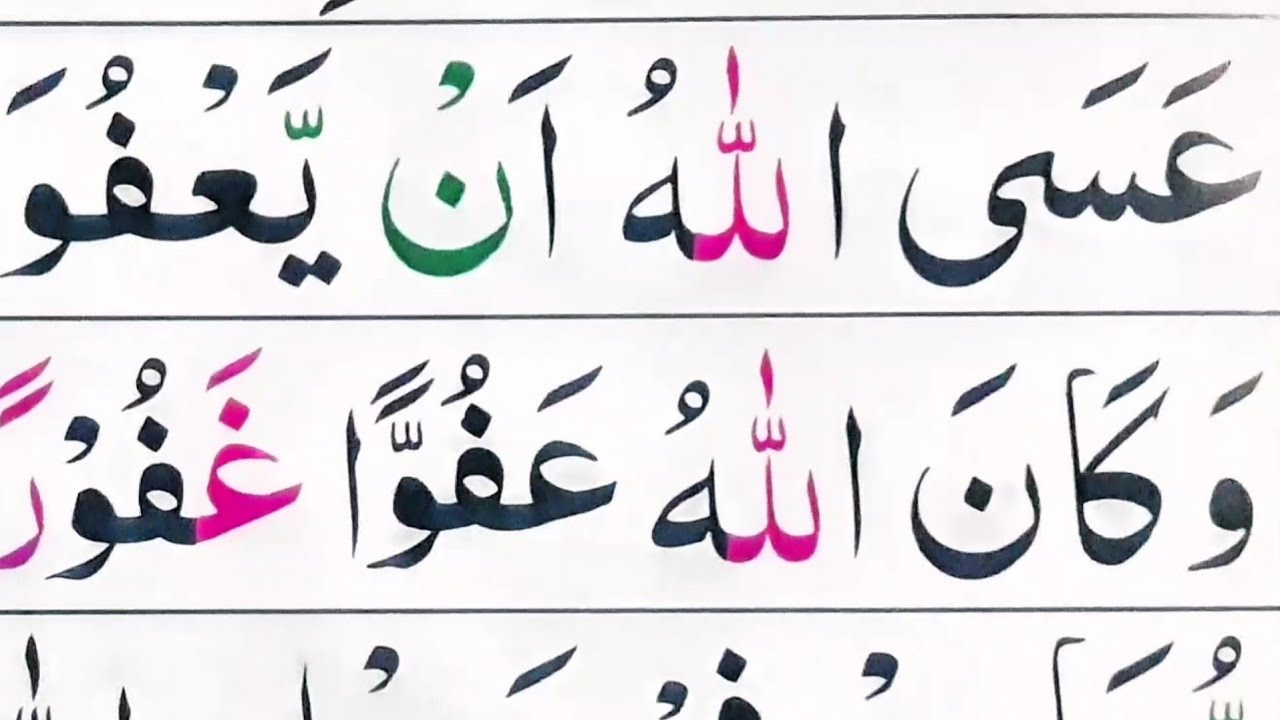 عَسَى اللّٰهُ اَنْ يَّعْفُوَ
وَ كَانَ اللّٰهُ عَفُوًّا غَفُوْرً